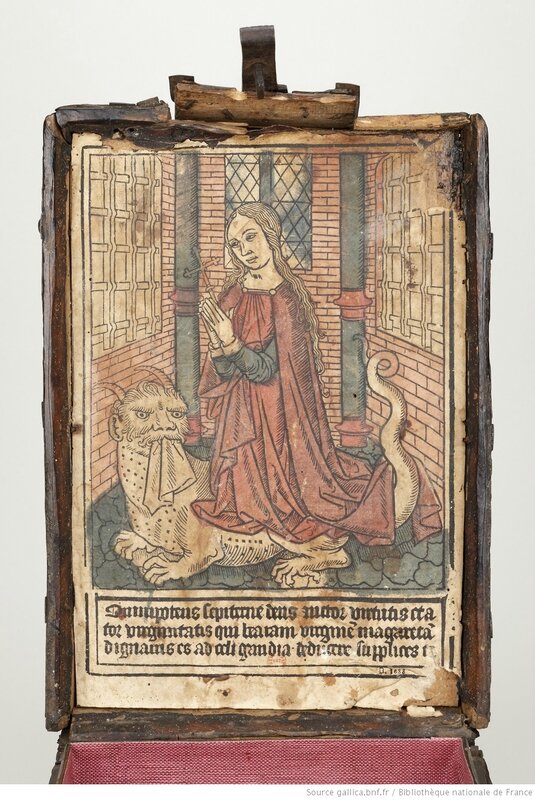 Omnipotens sempiterne deus auctor virtutis et a
tor virginitatis qui beatam virginē magaretā
dignatus es ad celi gaudia deducere supplices t
D. 1638
Source gallica.bnf.fr / Bibliothèque nationale de France